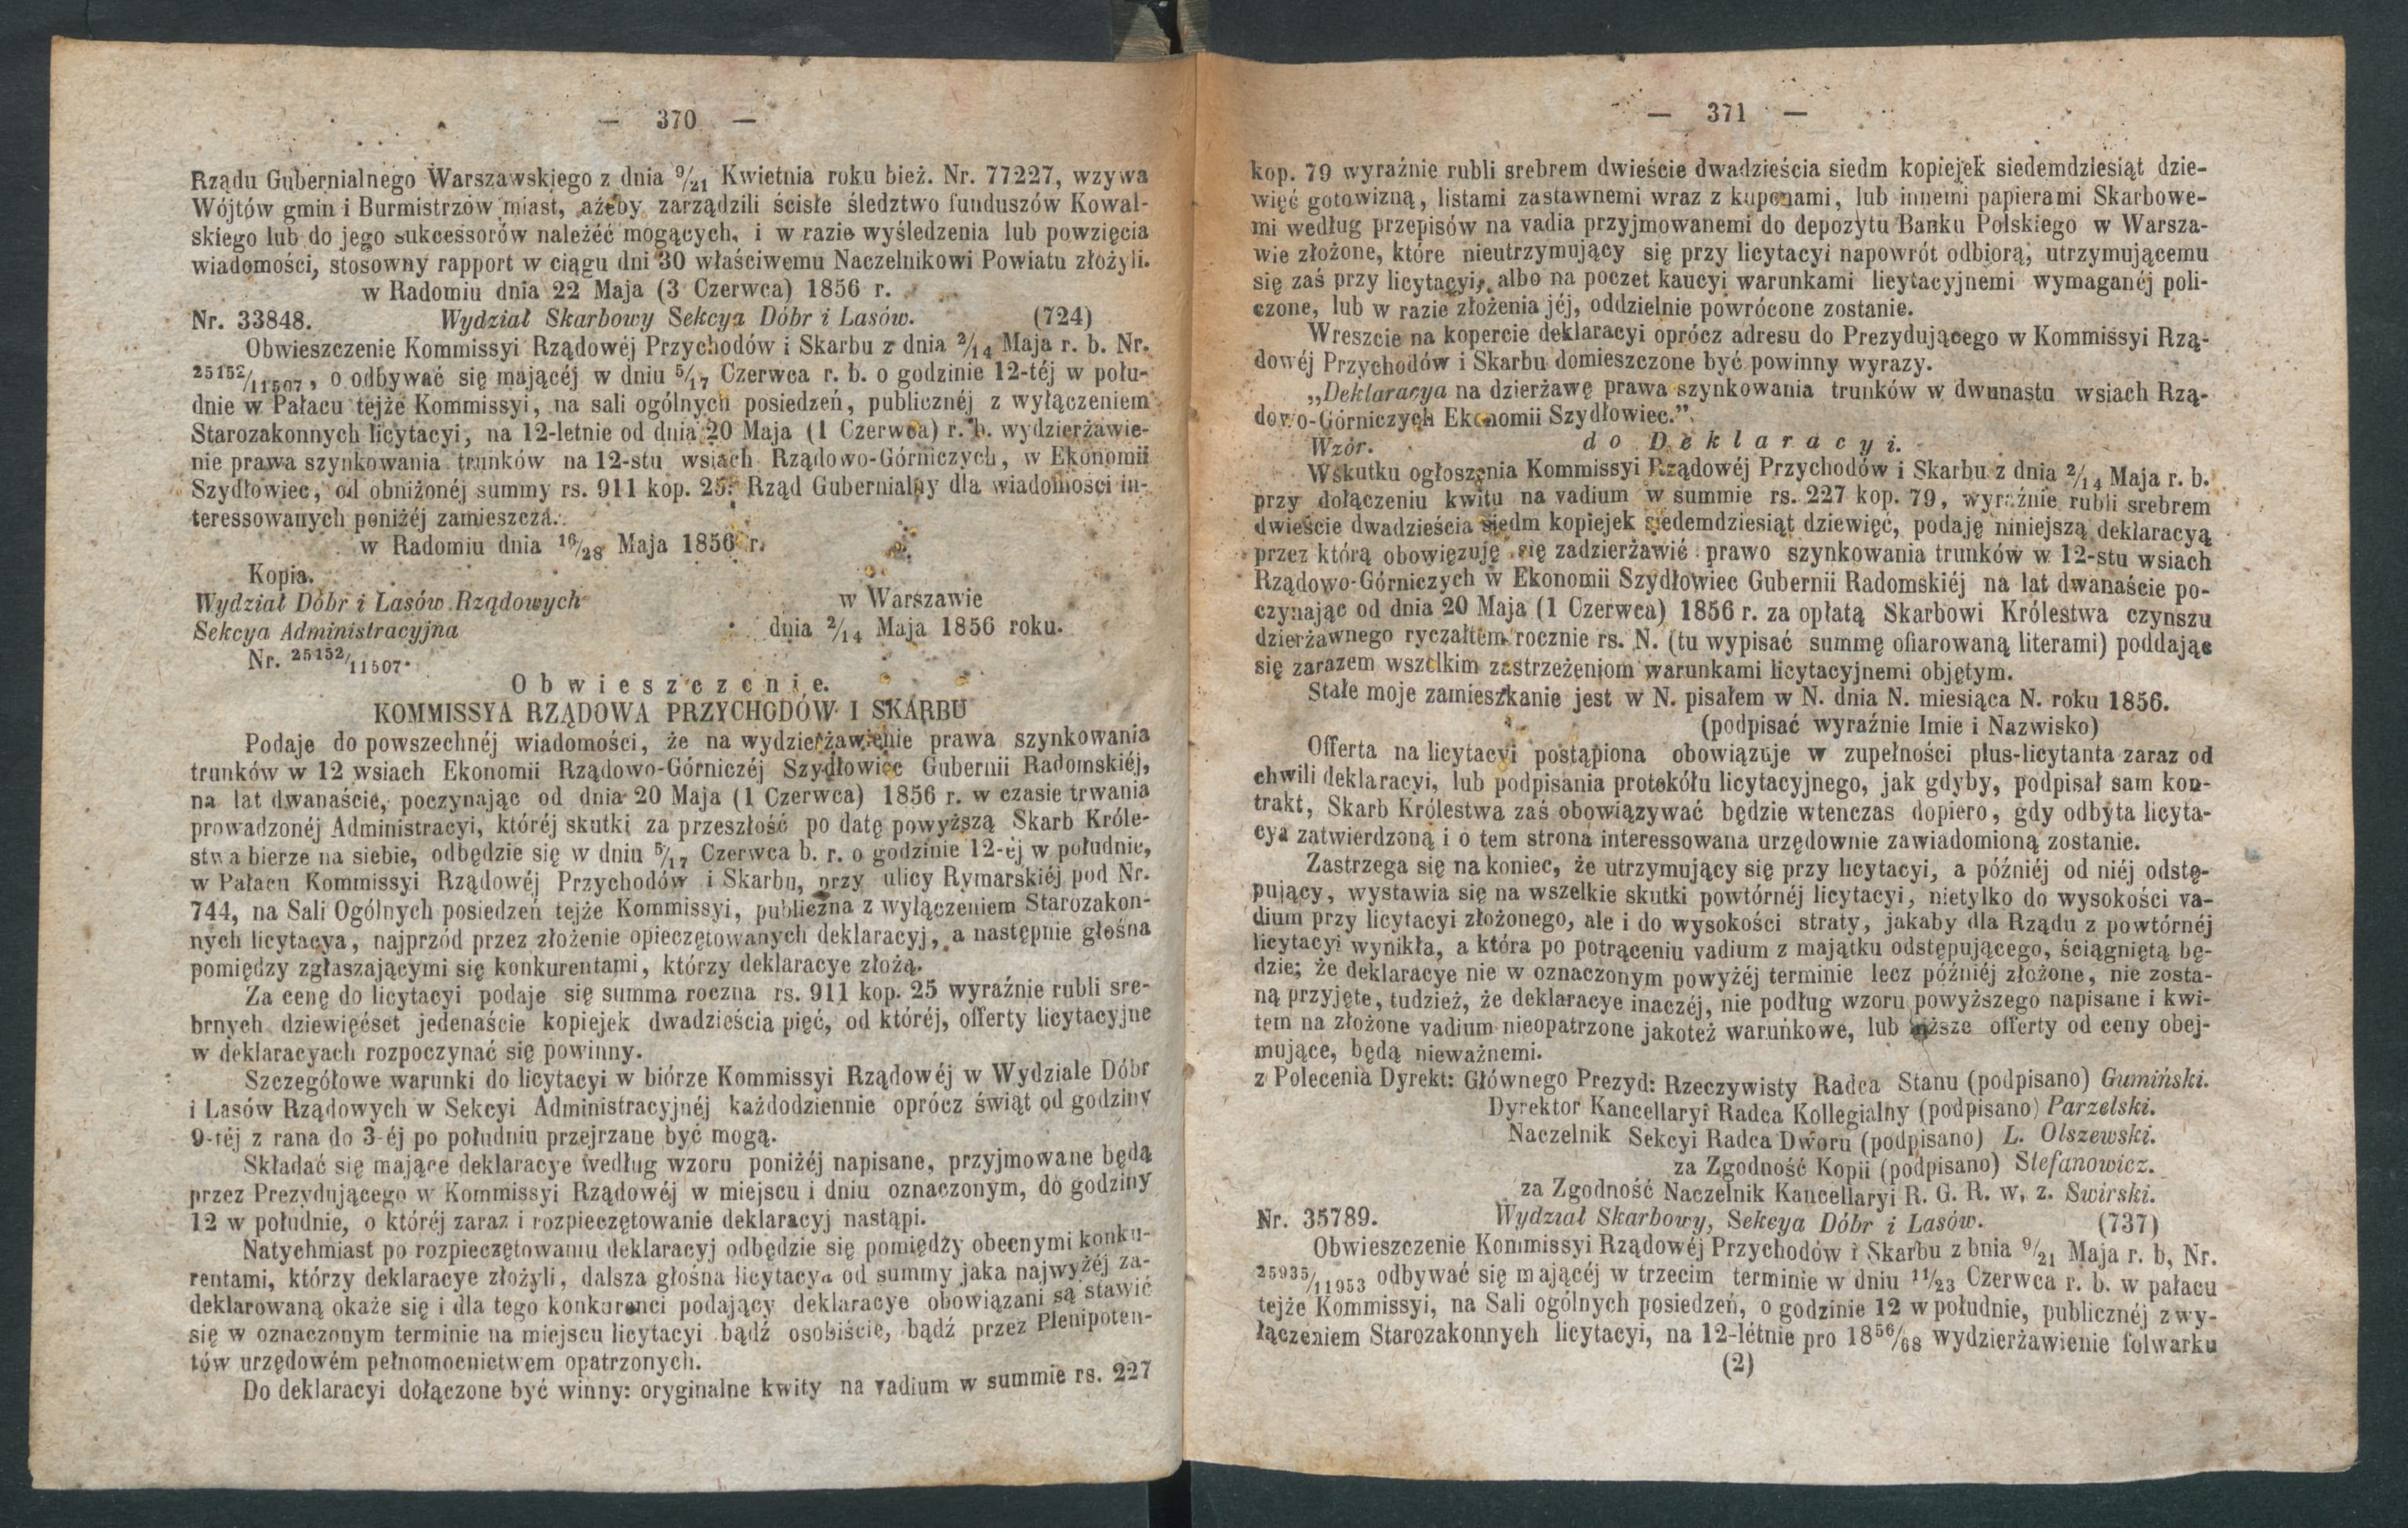 — 370 —
Rządu Gubernialnego Warszawskiego z dnia 9/21 Kwietnia roku bież. Nr. 77227, wzywa
Wójtów gmin i Burmistrzów miast, ażeby zarządzili ścisłe śledztwo funduszów Kowal-
skiego lub do jego sukcessorów należéć mogących, i w razie wyśledzenia lub powzięcia
wiadomości, stosowny rapport w ciągu dni 30 właściwemu Naczelnikowi Powiatu złożyli.
w Radomiu dnia 22 Maja (3 Czerwca) 1856 r.
Nr. 33848. Wydział Skarbowy Sekcya Dóbr i Lasów. (724)
Obwieszczenie Kommissyi Rządowéj Przychodów i Skarbu z dnia 2/14 Maja r. b. Nr.
25152/11507, o odbywać się mającéj w dniu 5/17 Czerwca r. b. o godzinie 12-téj w połu-
dnie w Pałacu tejże Kommissyi, na sali ogólnych posiedzeń, publicznéj z wyłączeniem
Starozakonnych licytacyi, na 12-letnie od dnia 20 Maja (1 Czerwca) r. b. wydzierżawie-
nie prawa szynkowania trunków na 12-stu wsiach Rządowo-Górniczych, w Ekonomii
Szydłowiec, od obniżonéj summy rs. 911 kop. 25. Rząd Gubernialny dla wiadomości in-
teressowanych poniżéj zamieszcza.
w Radomiu dnia 16/28 Maja 1856 r.
Kopia.
Wydział Dóbr i Lasów Rządowych w Warszawie
Sekcya Administracyjna dnia 2/14 Maja 1856 roku.
Nr. 25152/11507.
Obwieszczenie.
KOMMISSYA RZĄDOWA PRZYCHODÓW I SKARBU
Podaje do powszechnéj wiadomości, że na wydzierżawienie prawa szynkowania
trunków w 12 wsiach Ekonomii Rządowo-Górniczéj Szydłowiec Gubernii Radomskiéj,
na lat dwanaście, poczynając od dnia 20 Maja (1 Czerwca) 1856 r. w czasie trwania
prowadzonéj Administracyi, któréj skutki za przeszłość po datę powyższą Skarb Króle-
stwa bierze na siebie, odbędzie się w dniu 5/17 Czerwca b. r. o godzinie 12-ej w południe,
w Pałacu Kommissyi Rządowéj Przychodów i Skarbu, przy ulicy Rymarskiéj pod Nr.
744, na Sali Ogólnych posiedzeń tejże Kommissyi, publiczna z wyłączeniem Starozakon-
nych licytacya, najprzód przez złożenie opieczętowanych deklaracyj, a następnie głośna
pomiędzy zgłaszającymi się konkurentami, którzy deklaracye złożą.
Za cenę do licytacyi podaje się summa roczna rs. 911 kop. 25 wyraźnie rubli sre-
brnych dziewięćset jedenaście kopiejek dwadzieścia pięć, od któréj, offerty licytacyjne
w deklaracyach rozpoczynać się powinny.
Szczegółowe warunki do licytacyi w biórze Kommissyi Rządowéj w Wydziale Dóbr
i Lasów Rządowych w Sekcyi Administracyjnéj każdodziennie oprócz świąt od godziny
9-téj z rana do 3-éj po południu przejrzane być mogą.
Składać się mające deklaracye według wzoru poniżéj napisane, przyjmowane będą
przez Prezydującego w Kommissyi Rządowéj w miejscu i dniu oznaczonym, do godziny
12 w południe, o któréj zaraz i rozpieczętowanie deklaracyj nastąpi.
Natychmiast po rozpieczętowaniu deklaracyj odbędzie się pomiędzy obecnymi konku-
rentami, którzy deklaracye złożyli, dalsza głośna licytacya od summy jaka najwyżéj za-
deklarowaną okaże się i dla tego konkurenci podający deklaracye obowiązani są stawić
się w oznaczonym terminie na miejscu licytacyi bądź osobiście, bądź przez Plenipoten-
tów urzędowém pełnomocnictwem opatrzonych.
Do deklaracyi dołączone być winny: oryginalne kwity na vadium w summie rs. 227
— 371 —
kop. 79 wyraźnie rubli srebrem dwieście dwadzieścia siedm kopiejek siedemdziesiąt dzie-
więć gotowizną, listami zastawnemi wraz z kuponami, lub innemi papierami Skarbowe-
mi według przepisów na vadia przyjmowanemi do depozytu Banku Polskiego w Warsza-
wie złożone, które nieutrzymujący się przy licytacyi napowrót odbiorą, utrzymującemu
się zaś przy licytacyi, albo na poczet kaucyi warunkami licytacyjnemi wymaganéj poli-
czone, lub w razie złożenia jéj, oddzielnie powrócone zostanie.
Wreszcie na kopercie deklaracyi oprócz adresu do Prezydującego w Kommissyi Rzą-
dowéj Przychodów i Skarbu domieszczone być powinny wyrazy.
„Deklaracya na dzierżawę prawa szynkowania trunków w dwunastu wsiach Rzą-
dowo-Górniczych Ekonomii Szydłowiec.”
Wzór. do Deklaracyi.
Wskutku ogłoszenia Kommissyi Rządowéj Przychodów i Skarbu z dnia 2/14 Maja r. b.
przy dołączeniu kwitu na vadium w summie rs. 227 kop. 79, wyraźnie rubli srebrem
dwieście dwadzieścia siedm kopiejek siedemdziesiąt dziewięć, podaję niniejszą deklaracyą
przez którą obowięzuję się zadzierżawić prawo szynkowania trunków w 12-stu wsiach
Rządowo-Górniczych w Ekonomii Szydłowiec Gubernii Radomskiéj na lat dwanaście po-
czynając od dnia 20 Maja (1 Czerwca) 1856 r. za opłatą Skarbowi Królestwa czynszu
dzierżawnego ryczałtem rocznie rs. N. (tu wypisać summę ofiarowaną literami) poddając
się zarazem wszelkim zastrzeżeniom warunkami licytacyjnemi objętym.
Stałe moje zamieszkanie jest w N. pisałem w N. dnia N. miesiąca N. roku 1856.
(podpisać wyraźnie Imie i Nazwisko)
Offerta na licytacyi postąpiona obowiązuje w zupełności plus-licytanta zaraz od
chwili deklaracyi, lub podpisania protokółu licytacyjnego, jak gdyby, podpisał sam kon-
trakt, Skarb Królestwa zaś obowiązywać będzie wtenczas dopiero, gdy odbyta licyta-
cya zatwierdzoną i o tem strona interessowana urzędownie zawiadomioną zostanie.
Zastrzega się na koniec, że utrzymujący się przy licytacyi, a późniéj od niéj odstę-
pujący, wystawia się na wszelkie skutki powtórnéj licytacyi, nietylko do wysokości va-
dium przy licytacyi złożonego, ale i do wysokości straty, jakaby dla Rządu z powtórnéj
licytacyi wynikła, a która po potrąceniu vadium z majątku odstępującego, ściągniętą bę-
dzie; że deklaracye nie w oznaczonym powyżéj terminie lecz późniéj złożone, nie zosta-
ną przyjęte, tudzież, że deklaracye inaczéj, nie podług wzoru powyższego napisane i kwi-
tem na złożone vadium nieopatrzone jakoteż warunkowe, lub niższe offerty od ceny obej-
mujące, będą nieważnemi.
z Polecenia Dyrekt: Głównego Prezyd: Rzeczywisty Radca Stanu (podpisano) Gumiński.
Dyrektor Kancellaryi Radca Kollegialny (podpisano) Parzelski.
Naczelnik Sekcyi Radca Dworu (podpisano) L. Olszewski.
za Zgodność Kopii (podpisano) Stefanowicz.
za Zgodność Naczelnik Kancellaryi R. G. R. w, z. Swirski.
Nr. 35789. Wydział Skarbowy, Sekcya Dóbr i Lasów. (737)
Obwieszczenie Kommissyi Rządowéj Przychodów i Skarbu z bnia 9/21 Maja r. b, Nr.
25935/11953 odbywać się mającéj w trzecim terminie w dniu 11/23 Czerwca r. b. w pałacu
tejże Kommissyi, na Sali ogólnych posiedzeń, o godzinie 12 w południe, publicznéj z wy-
łączeniem Starozakonnych licytacyi, na 12-létnie pro 1856/68 wydzierżawienie folwarku
(2)